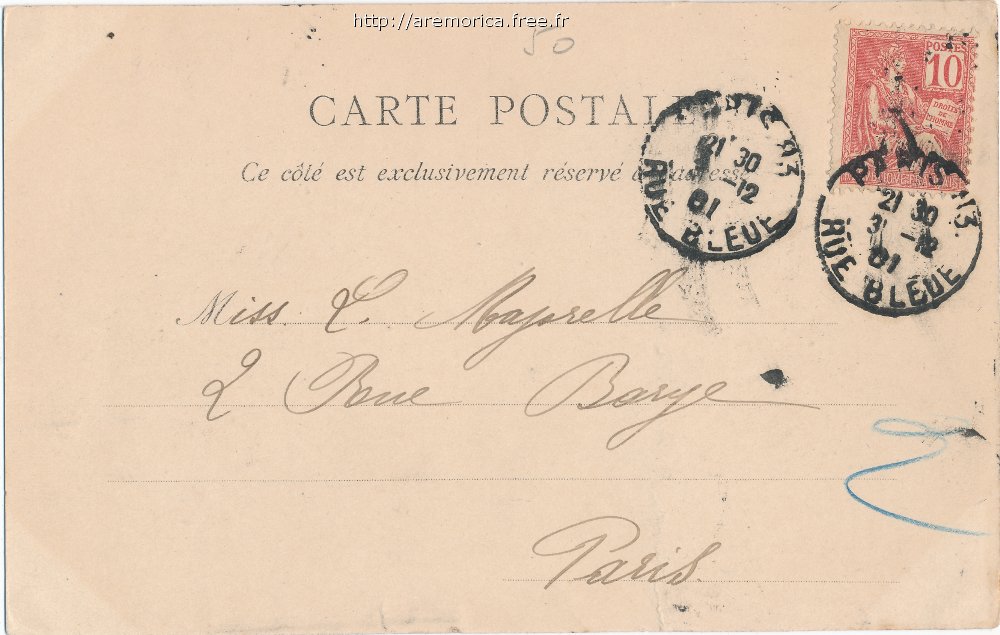 http://aremorica.free.fr
50
POSTES
10
DROITS
DE
L'HOMME
CARTE POSTALE
Ce côté est exclusivement réservé à l'adresse
PARIS 13
21 30
31 -12
01
RUE BLEUE
PARIS 13.
21 30
31 -12
01
RUE BLEUE
Miss. L. Majorelle
2 Rue Barye
Paris.